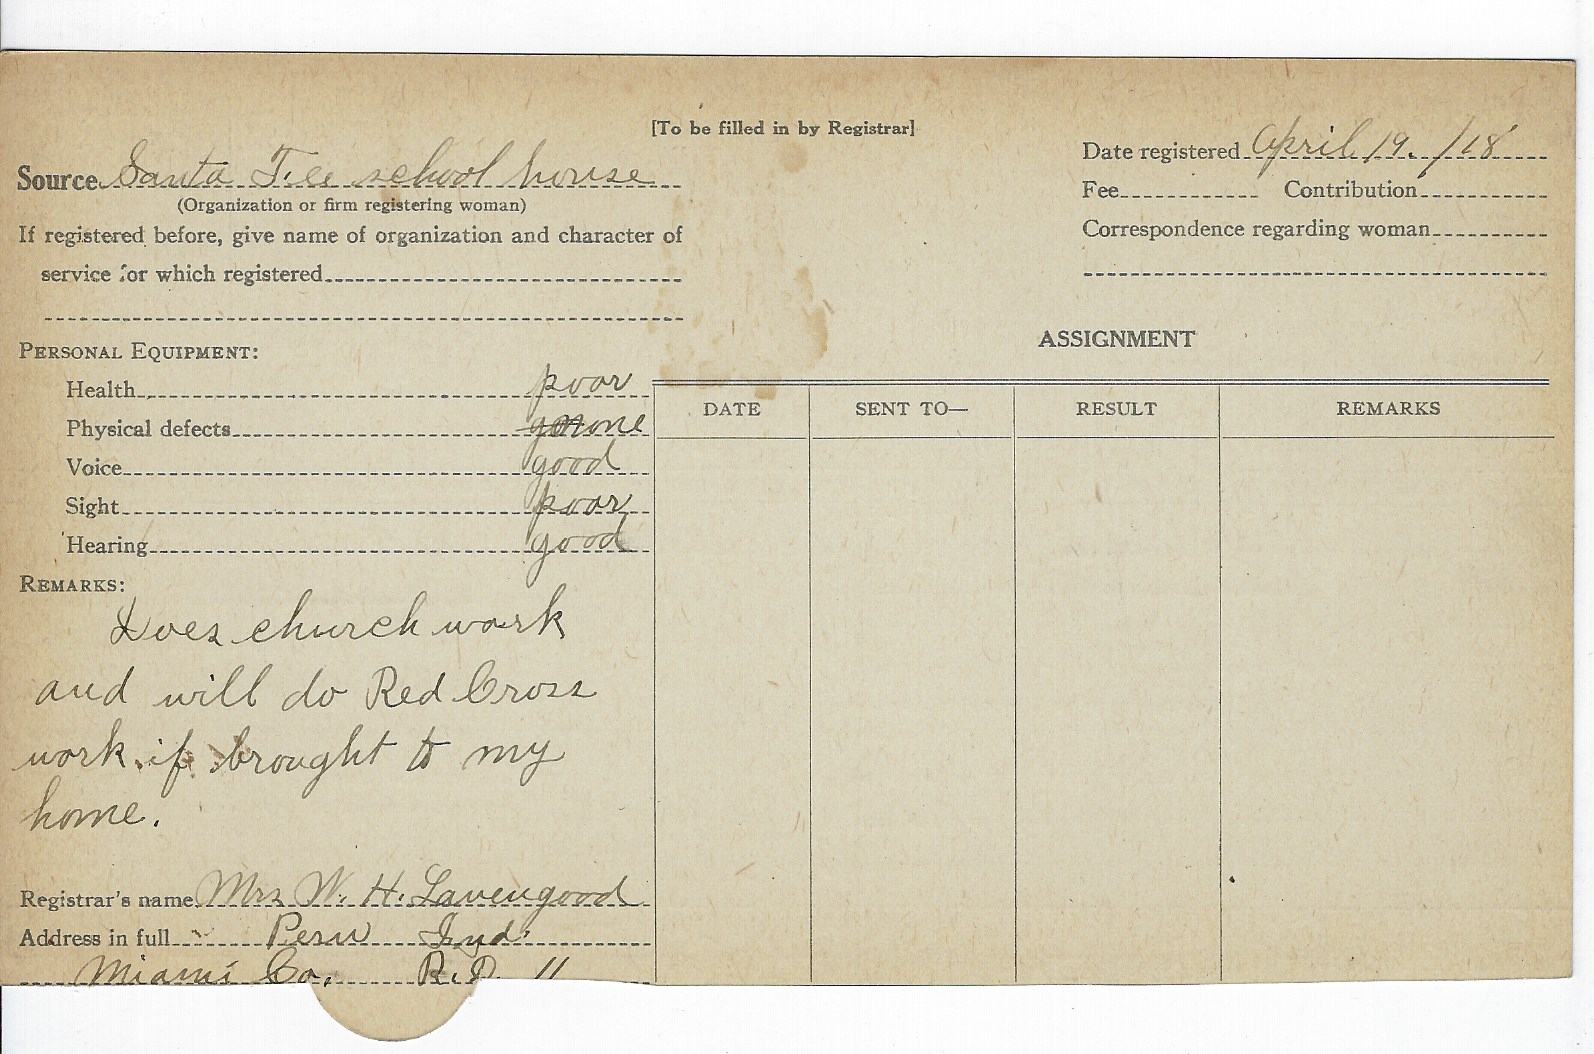 [To be filled in by Registrar]
Source Santa Fee school house
(Organization or firm registering woman)
If registered before, give name of organization and character of
service for which registered
Date registered April 19. /18
Fee Contribution
Correspondence regarding woman
PERSONAL EQUIPMENT:
Health poor
Physical defects none
Voice good
Sight poor
Hearing good
REMARKS:
Does church work
and will do Red Cross
work if brought to my
home.
Registrar's name Mrs W. H. Lavengood
Address in full Peru Ind.
Miami Co. R.D. 11
ASSIGNMENT
DATE SENT TO— RESULT REMARKS